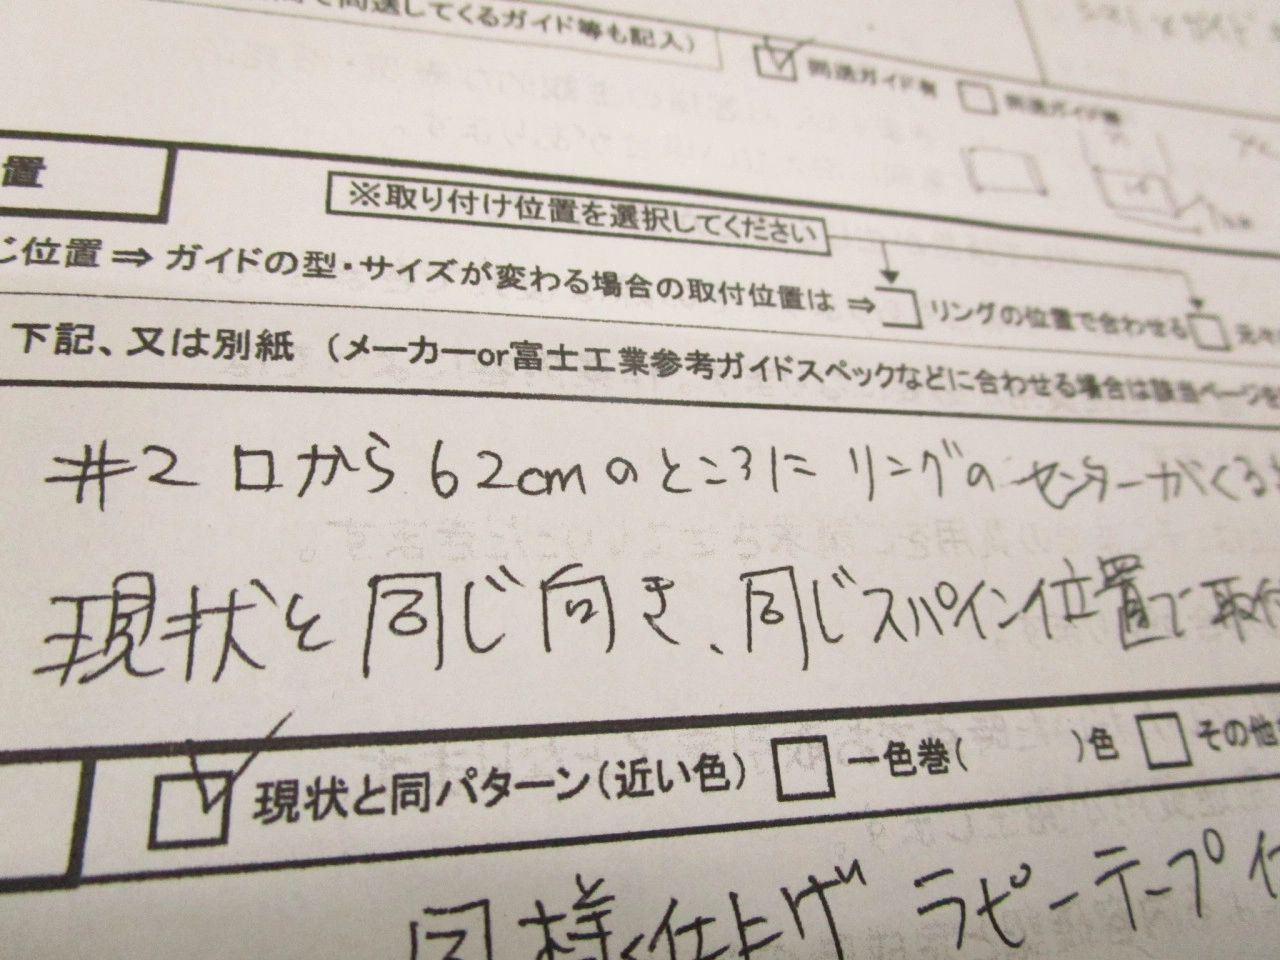 で同送してくるガイド等も記入)
同送ガイド有 同送ガイド無
置
※取り付け位置を選択してください
じ位置⇒ガイドの型・サイズが変わる場合の取付位置は⇒ リングの位置で合わせる 元々
下記、又は別紙 (メーカーor富士工業参考ガイドスペックなどに合わせる場合は該当ページを
#2 口から62cmのところに リングのセンターがくる
現状と同じ向き、同じスパイン位置で取付
現状と同パターン(近い色) 一色巻( )色 その他
同様仕上げ ラピーテープ